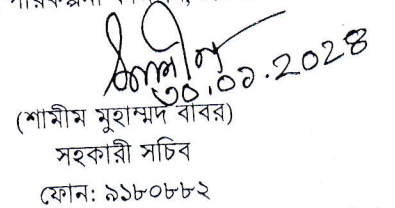 ৩০.০১.২০২৪
(শামীম মুহাম্মদ বাবর)
সহকারী সচিব
ফোন: ৯১৮০৮৮২